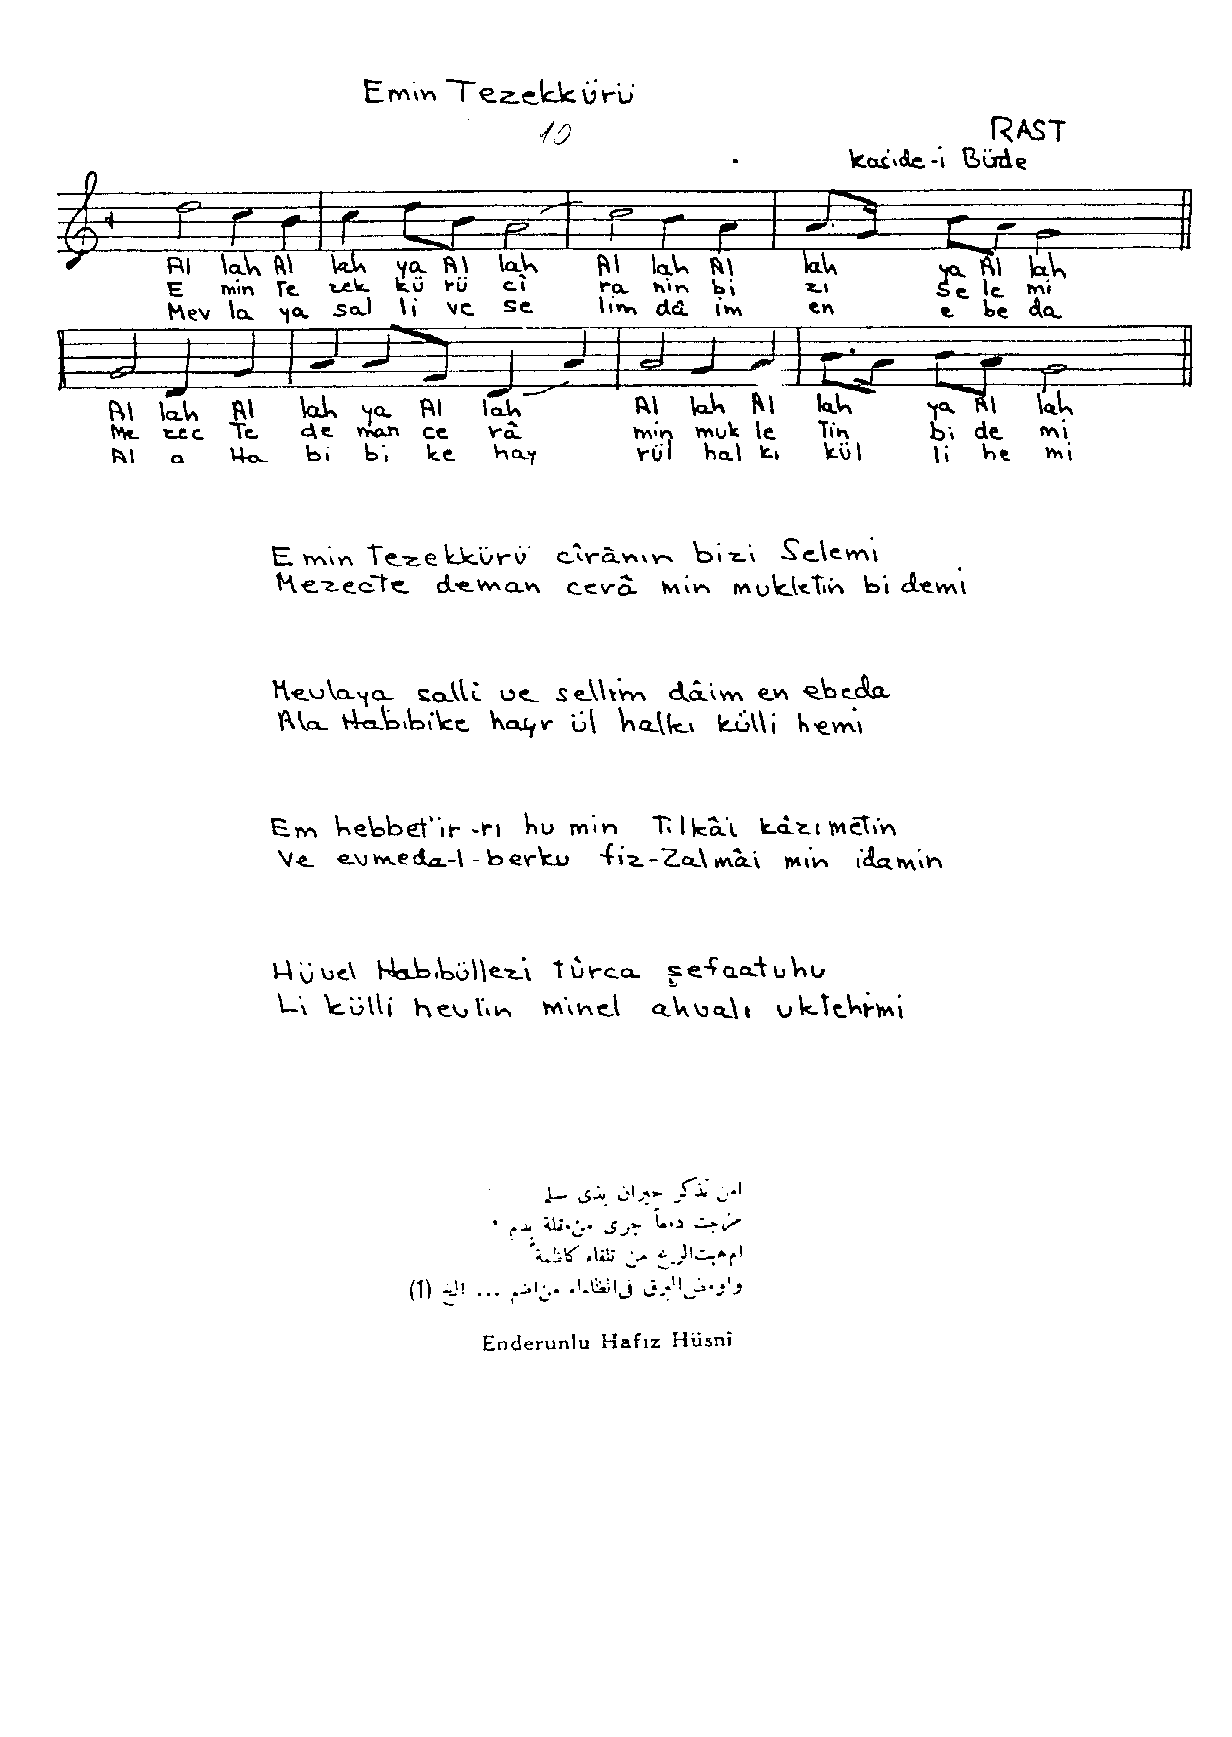 Emin Tezekkürü
10
RAST
Kaside-i Bürde
Al lah Al lah ya Al lah Al lah Al lah ya Al lah
E min te zek kü rü cî ra nin bi zi se le mi
Mev la ya sal li ve se lim dâ im en e be da
Al lah Al lah ya Al lah Al lah Al lah ya Al lah
Me zec te de man ce râ min muk le tin bi de mi
Al a Ha bi bi ke hay rül hal kı kül li he mi
Emin Tezekkürü cîrânın bizi Selemi
Mezecte deman cerâ min mukletin bi demi
Mevlaya salli ve sellim dâim en ebeda
Ala Habibike hayr ül halkı külli hemi
Em hebbet'ir-rı hu min Tilkâi kâzımetin
Ve evmeda-l-berku fiz-Zalmâi min idamin
Hüvel Habibüllezi türca şefaatuhu
Li külli hevlin minel ahvalı uktehimi
امن تذكر جيران بذى سلم
مزجت دمعاً جرى من مقلة بدم
ام هبت الريح من تلقاء كاظمة
واومض البرق فى الظلماء من اضم ... الخ (1)
Enderunlu Hafız Hüsnî